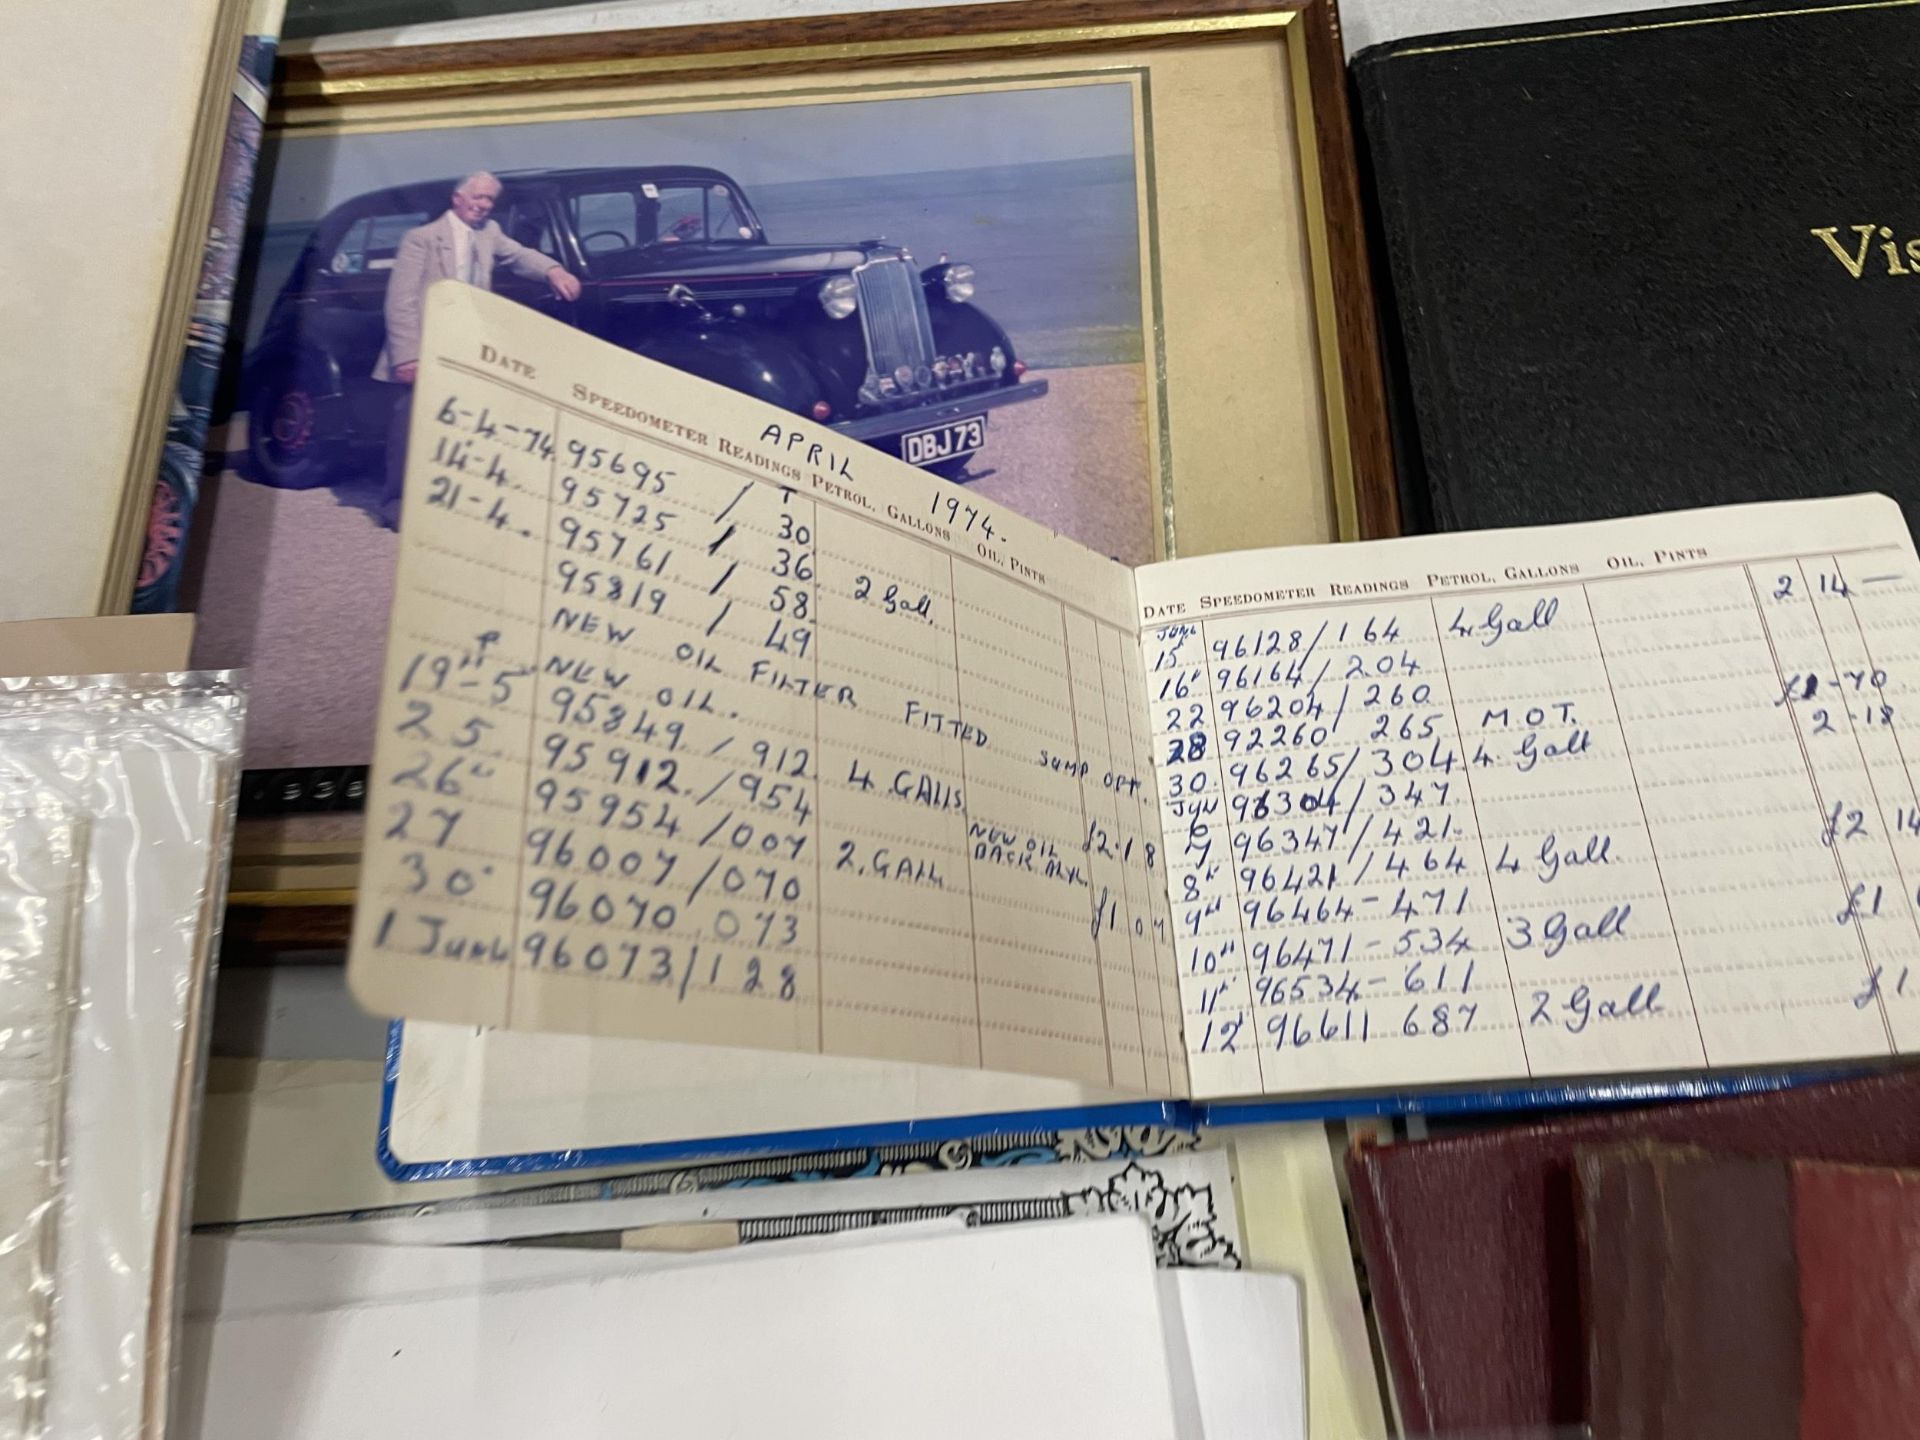 Vis
DBJ 73
DATE SPEEDOMETER READINGS PETROL, GALLONS OIL, PINTS
APRIL 1974.
6-4-74 95695 / T
14-4. 95725 / 30
21-4. 95761 / 36
95819 / 58 2 Gall.
/ 49
NEW OIL FILTER FITTED SUMP OPT.
NEW OIL.
19"-5 95849 / 912 4 GALLS. £2.18
25 95912 / 954 NEW OIL
26" 95954 / 007 2. GALL
27 96007 / 070 £1 07
30" 96070 073
1 JUNE 96073 / 128
DATE SPEEDOMETER READINGS PETROL, GALLONS OIL, PINTS
JUNE
15" 96128 / 164 4 Gall 2 14 —
16" 96164 / 204
22 96204 / 260
28 92260 265 M.O.T. £1-70
30. 96265 / 304 4 Gall 2-18
96304 / 347
7 96347 / 421
8" 96421 / 464 4 Gall. £2 14
9" 96464 - 471
10" 96471 - 534 3 Gall £1
11" 96534 - 611
12" 96611 687 2 Gall £1